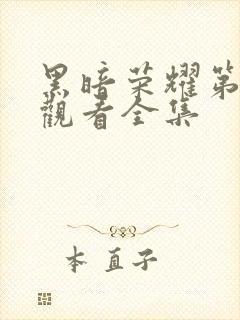 黑暗荣耀第
觀看全集
本直子